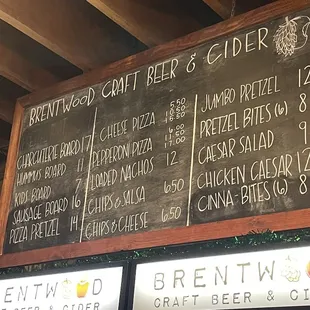 BRENTWOOD CRAFT BEER & CIDER
CHARCUTERIE BOARD 17
HUMMUS BOARD 11
KIDS BOARD 7
SAUSAGE BOARD 16
PIZZA PRETZEL 14
CHEESE PIZZA
PEPPERONI PIZZA
LOADED NACHOS 12
CHIPS & SALSA 650
CHIPS & CHEESE 650
JUMBO PRETZEL 12
PRETZEL BITES (6) 8
CAESAR SALAD 9
CHICKEN CAESAR 12
CINNA-BITES (6) 8
ENTW D
BEER & CIDER
BRENTW D
CRAFT BEER & CI